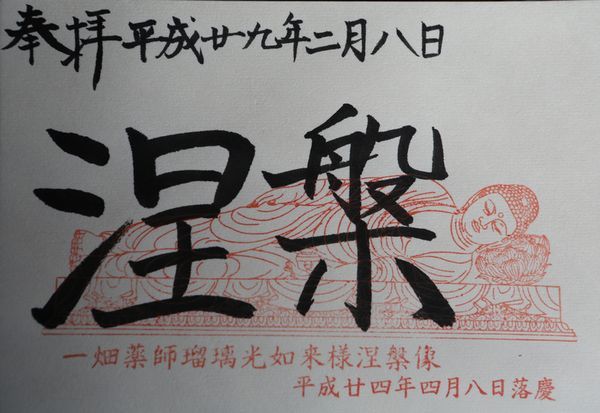 奉拝 平成廿九年二月八日
涅槃
一畑薬師瑠璃光如来様涅槃像
平成廿四年四月八日落慶